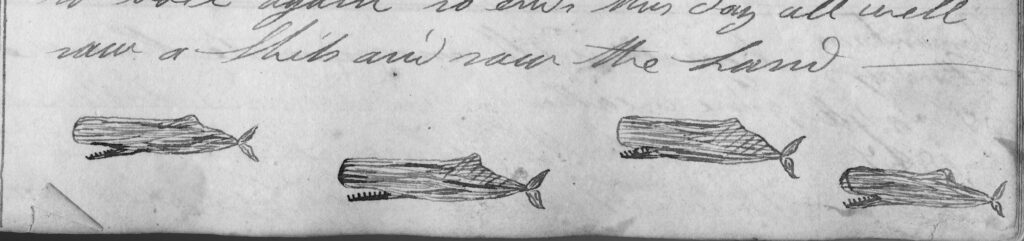 to boil again so ends this day all well
saw a Ship and saw the Land